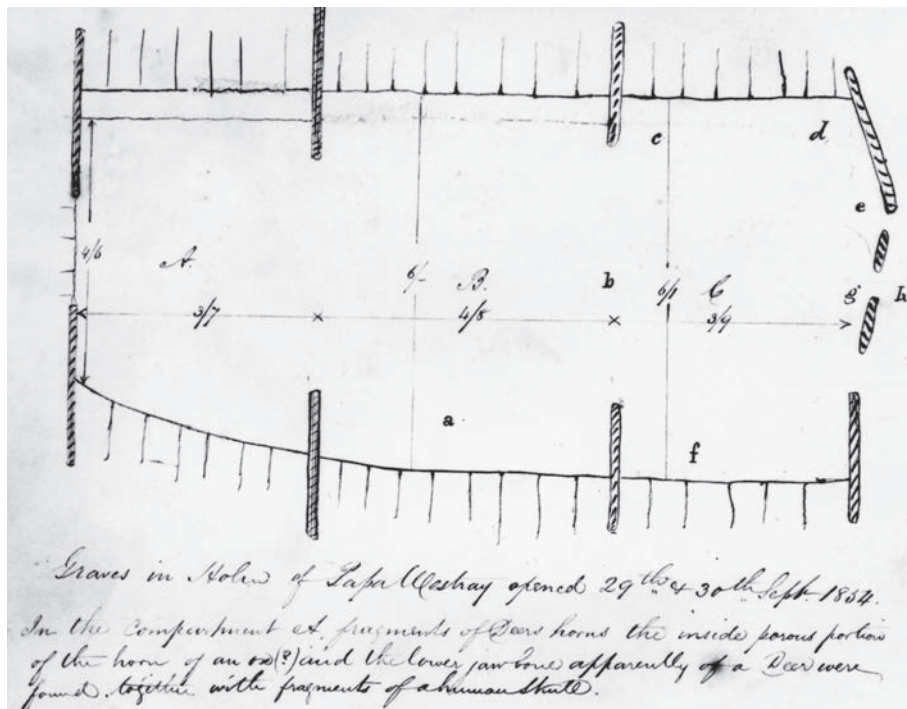 c d
e
4/6 A. 6/- B. b 6/1 C g h
3/7 4/8 3/9
a
f
Graves in Holm of Papa Westray opened 29th & 30th Sept. 1854.
In the compartment A fragments of Deers horns the inside porous portion
of the horn of an ox(?) and the lower jaw bone apparently of a Deer were
found together with fragments of a human skull.